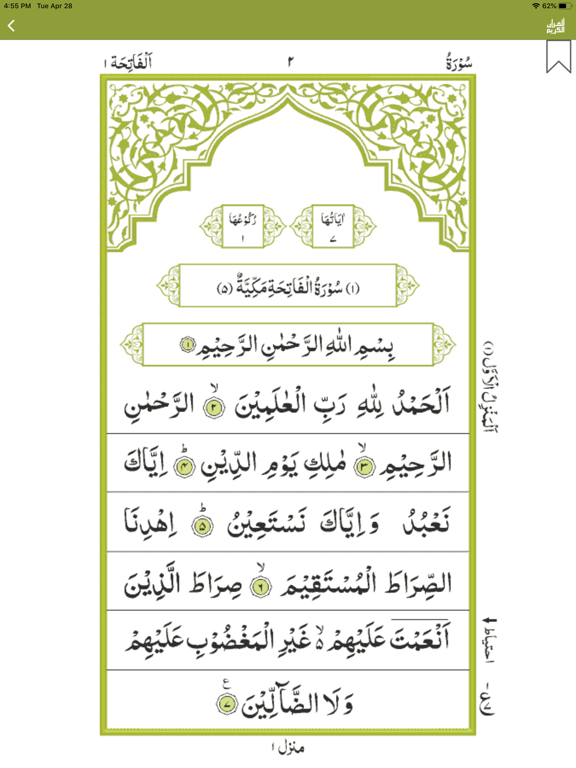 4:55 PM Tue Apr 28 62%
القرآن الكريم
سُوْرَةُ ٢ اَلْفَاتِحَة ١
اٰيَاتُهَا ٧ رُكُوْعُهَا ١
(١) سُوْرَةُ الْفَاتِحَةِ مَكِّيَّةٌ (٥)
بِسْمِ اللّٰهِ الرَّحْمٰنِ الرَّحِيْمِ ١
اَلْحَمْدُ لِلّٰهِ رَبِّ الْعٰلَمِيْنَ ۙ ٢ الرَّحْمٰنِ
الرَّحِيْمِ ۙ ٣ مٰلِكِ يَوْمِ الدِّيْنِ ؕ ۴ اِيَّاكَ
نَعْبُدُ وَاِيَّاكَ نَسْتَعِيْنُ ؕ ۵ اِهْدِنَا
الصِّرَاطَ الْمُسْتَقِيْمَ ۙ ٦ صِرَاطَ الَّذِيْنَ
اَنْعَمْتَ عَلَيْهِمْ ۙ۬ غَيْرِ الْمَغْضُوْبِ عَلَيْهِمْ
وَلَا الضَّآلِّيْنَ ٧ ع
اَلْمَنْزِلُ الْاَوَّل (١)
احتیاط
منزل ١